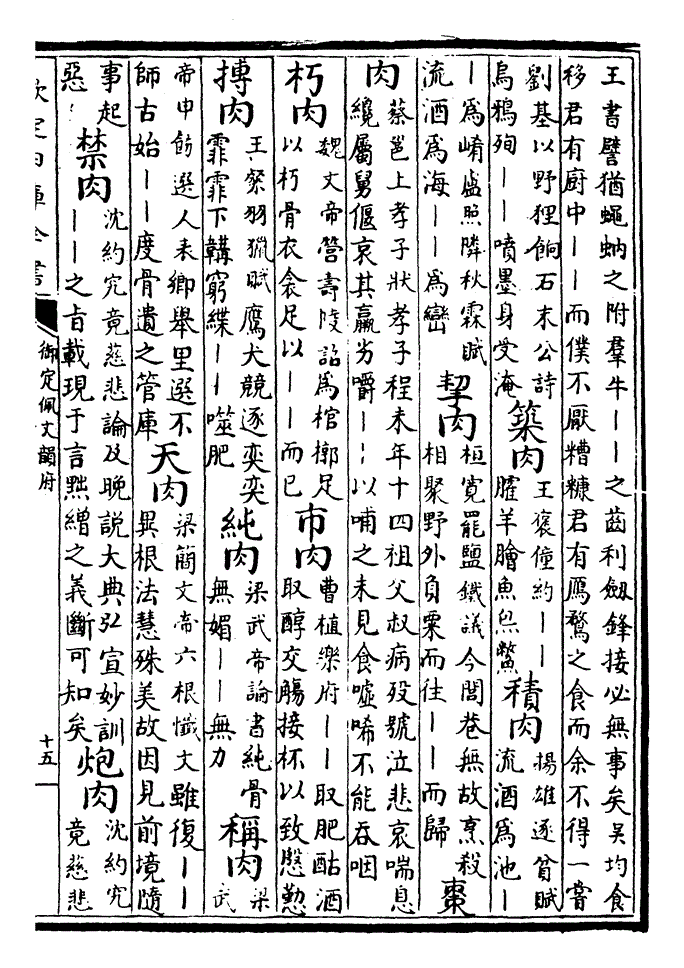 王書譬猶蠅蚋之附羣牛｜｜之齒利劔鋒接必無事矣吴均食
移君有廚中｜｜而僕不厭糟糠君有鴈鶩之食而余不得一嘗
劉基以野狸餉石末公詩
烏鴉殉｜｜噴墨身受淹
築肉
王褒僮約｜｜
臛羊膾魚炰鱉
積肉
揚雄逐貧賦
流酒為池｜
｜為崤盧照隣秋霖賦
流酒為海｜｜為巒
挈肉
桓寛罷鹽鐵議今閭巷無故烹殺
相聚野外負粟而往｜｜而歸
棗
肉
蔡邕上孝子狀孝子程未年十四祖父叔病歿號泣悲哀喘息
纔屬舅偃哀其羸劣嚼｜｜以哺之未見食噓唏不能吞咽
朽肉
魏文帝營壽陵詔為棺槨足
以朽骨衣衾足以｜｜而已
市肉
曹植樂府｜｜取肥酤酒
取醇交觴接杯以致慇懃
搏肉
王粲羽獵賦鷹犬競逐奕奕
霏霏下韝窮緤｜｜噬肥
純肉
梁武帝論書純骨
無媚｜｜無力
稱肉
梁
武
帝申飭選人表卿舉里選不
師古始｜｜度骨遺之管庫
天肉
梁簡文帝六根懺文雖復｜｜
異根法慧殊美故因見前境隨
事起
惡
禁肉
沈約究竟慈悲論及晚説大典弘宣妙訓
｜｜之旨載現于言黜繒之義斷可知矣
炮肉
沈約究
竟慈悲
欽定四庫全書
御定佩文韻府
十五